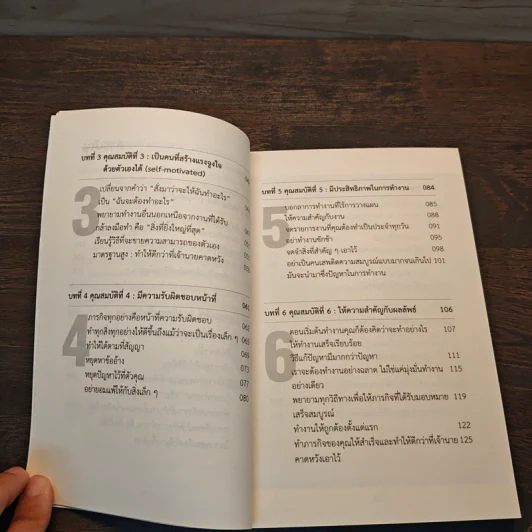 บทที่ 3 คุณสมบัติที่ 3 : เป็นคนที่สร้างแรงจูงใจ
ด้วยตัวเองได้ (self-motivated)
3
เปลี่ยนจากคำว่า "สั่งมาว่าจะให้ฉันทำอะไร"
เป็น "ฉันจะต้องทำอะไร"
พยายามทำงานอื่นนอกเหนือจากงานที่ได้รับ
กำลังมือทำ คือ "สิ่งที่ยิ่งใหญ่ที่สุด"
เรียนรู้วิธีที่จะขยายความสามารถของตัวเอง
มาตรฐานสูง : ทำให้ดีกว่าที่เจ้านายคาดหวัง
บทที่ 4 คุณสมบัติที่ 4 : มีความรับผิดชอบหน้าที่
4
ภารกิจทุกอย่างคือหน้าที่ความรับผิดชอบ
ทำทุกสิ่งทุกอย่างให้ดีขึ้นถึงแม้ว่าจะเป็นเรื่องเล็ก ๆ 065
ทำให้ได้ตามที่สัญญา 069
หยุดหาข้ออ้าง 073
หยุดปัญหาไว้ที่ตัวคุณ 077
อย่ายอมแพ้ให้กับสิ่งเล็ก ๆ 080
บทที่ 5 คุณสมบัติที่ 5 : มีประสิทธิภาพในการทำงาน 084
5
บอกลาการทำงานที่ไร้การวางแผน 085
ให้ความสำคัญกับงาน 088
จดรายการงานที่คุณต้องทำเป็นประจำทุกวัน 091
อย่าทำงานชักช้า 095
จดจำสิ่งที่สำคัญ ๆ เอาไว้ 098
อย่าเป็นคนเสพติดความสมบูรณ์แบบมากจนเกินไป 101
มันจะนำมาซึ่งปัญหาในการทำงาน
บทที่ 6 คุณสมบัติที่ 6 : ให้ความสำคัญกับผลลัพธ์ 106
6
ตอนเริ่มต้นทำงานคุณก็ต้องคิดว่าจะทำอย่างไร 107
ให้ทำงานเสร็จเรียบร้อย
วิธีแก้ปัญหามีมากกว่าปัญหา 111
เราจะต้องทำงานอย่างฉลาด ไม่ใช่แค่มุ่งมั่นทำงาน 115
อย่างเดียว
พยายามทุกวิถีทางเพื่อให้ภารกิจที่ได้รับมอบหมาย 119
เสร็จสมบูรณ์
ทำงานให้ถูกต้องตั้งแต่แรก 122
ทำภารกิจของคุณให้สำเร็จและทำให้ดีกว่าที่เจ้านาย 125
คาดหวังเอาไว้